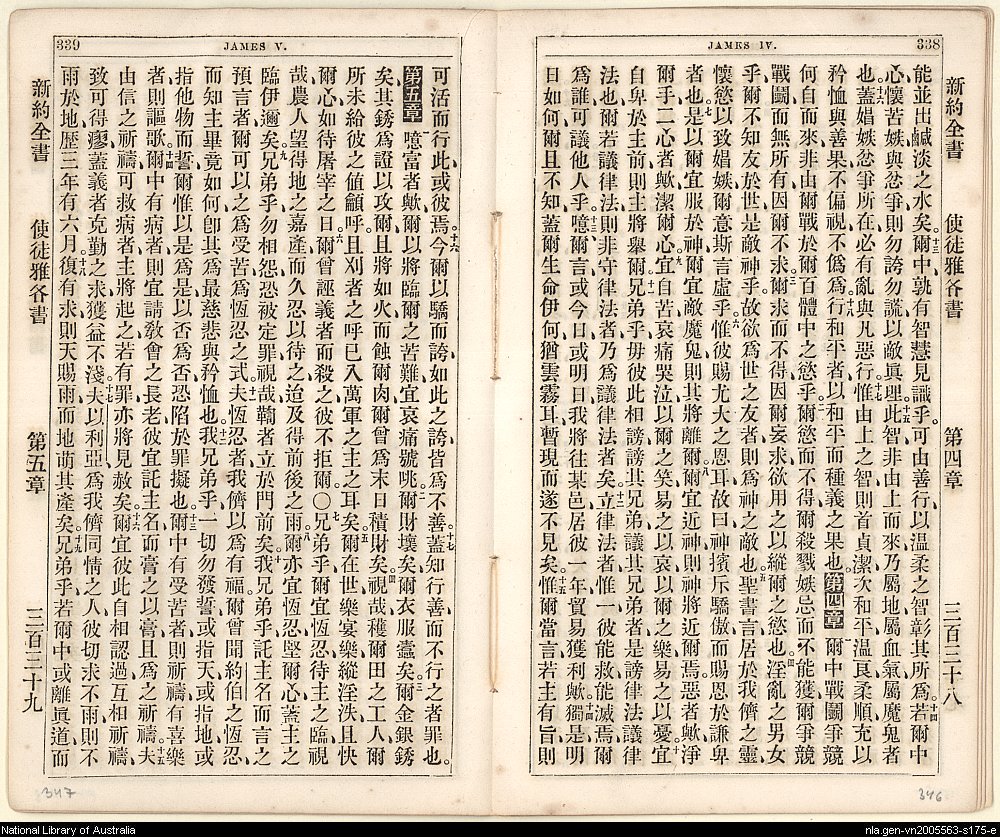 338
JAMES IV.
新約全書　使徒雅各書　第四章　三百三十八
能並出鹹淡之水矣。十三爾中孰有智慧見識乎、可由善行、以温柔之智彰其所爲、十四若爾中
心懷苦嫉、與忿爭、則勿誇、勿謊、以敵眞理、十五此智非由上而來、乃屬地、屬血氣、屬魔鬼者
也。十六蓋娼嫉忿爭所在、必有亂與凡惡行、十七惟由上之智、則首貞潔、次和平、温良、柔順、充以
矜恤與善果、不偏視、不僞爲、十八行和平者、以和平而種義之果也。第四章 一爾中戰鬭爭競、
何自而來、非由爾戰於爾百體中之慾乎、二爾慾而不得、爾殺戮嫉忌而不能獲、爾爭競
戰鬭而無所有、因爾不求、三爾求而不得、因爾妄求、欲用之以縱爾之慾也。四淫亂之男女
乎、爾不知友於世、是敵神乎、故欲爲世之友者、則爲神之敵也。五聖書言居於我儕之靈、
懷慾以致娼嫉、爾意斯言虛乎、六惟彼賜尤大之恩耳、故曰、神擯斥驕傲、而賜恩於謙卑
者也、七是以爾宜服於神、爾宜敵魔鬼、則其將離爾、八爾宜近神、則神將近爾焉、惡者歟、淨
爾手、二心者歟、潔爾心、九宜自苦哀痛哭泣、以爾之笑、易之以哀、以爾之樂、易之以憂、十宜
自卑於主前、則主將舉爾、十一兄弟乎、毋彼此相謗、謗其兄弟、議其兄弟者、是謗律法、議律
法也、爾若議律法、則非守律法者、乃爲議律法者矣、十二立律法者惟一、彼能救能滅焉、爾
爲誰、可議他人乎、十三噫、爾言或今日或明日、我將往某邑、居彼一年、貿易獲利歟、十四獨是明
日如何、爾且不知、蓋爾生命伊何、猶雲霧耳、暫現而遂不見矣、十五惟爾當言、若主有旨、則
346
339
JAMES V.
可活而行此、或彼焉、十六今爾以驕而誇、如此之誇、皆爲不善、十七蓋知行善、而不行之者、罪也。
第五章 一噫、富者歟、爾以將臨爾之苦難、宜哀痛號咷、二爾財壞矣、爾衣服蠹矣、三爾金銀銹
矣、其銹爲證以攻爾、且將如火而蝕爾肉、爾曾爲末日積財矣、四視哉、穫爾田之工人、爾
所未給彼之值龥呼、且刈者之呼、已入萬軍之主之耳矣、五爾在世樂宴樂、縱淫泆、且快
爾心、如待屠宰之日、六爾曾誣義者而殺之、彼不拒爾〇七兄弟乎、爾宜恆忍、待主之臨、視
哉、農人望得地之嘉產、而久忍以待之、迨及得前後之雨、八爾亦宜恆忍、堅爾心、蓋主之
臨伊邇矣、九兄弟乎、勿相怨、恐被定罪、視哉、鞫者立於門前矣、十我兄弟乎、託主名而言之
預言者、爾可以之爲受苦爲恆忍之式、十一夫恆忍者、我儕以爲有福、爾曾聞約伯之恆忍、
而知主畢竟如何、卽其爲最慈悲與矜恤也、十二我兄弟乎、一切勿發誓、或指天、或指地、或
指他物而誓、爾惟以是爲是、以否爲否、恐陷於罪擬也、十三爾中有受苦者、則祈禱、有喜樂
者、則謳歌、十四爾中有病者、則宜請敎會之長老、彼宜託主名而膏之以膏、且爲之祈禱、十五夫
由信之祈禱、可救病者、主將起之、若有罪、亦將見赦矣、十六爾宜彼此自相認過、互相祈禱、
致可得瘳、蓋義者克勤之求、獲益不淺、十七夫以利亞、爲我儕同情之人、彼切求不雨、則不
雨於地、歷三年有六月、十八復有求、則天賜雨、而地萌其產矣、十九兄弟乎、若爾中或離眞道、而
新約全書　使徒雅各書　第五章　三百三十九
347
National Library of Australia
nla.gen-vn2005563-s175-e